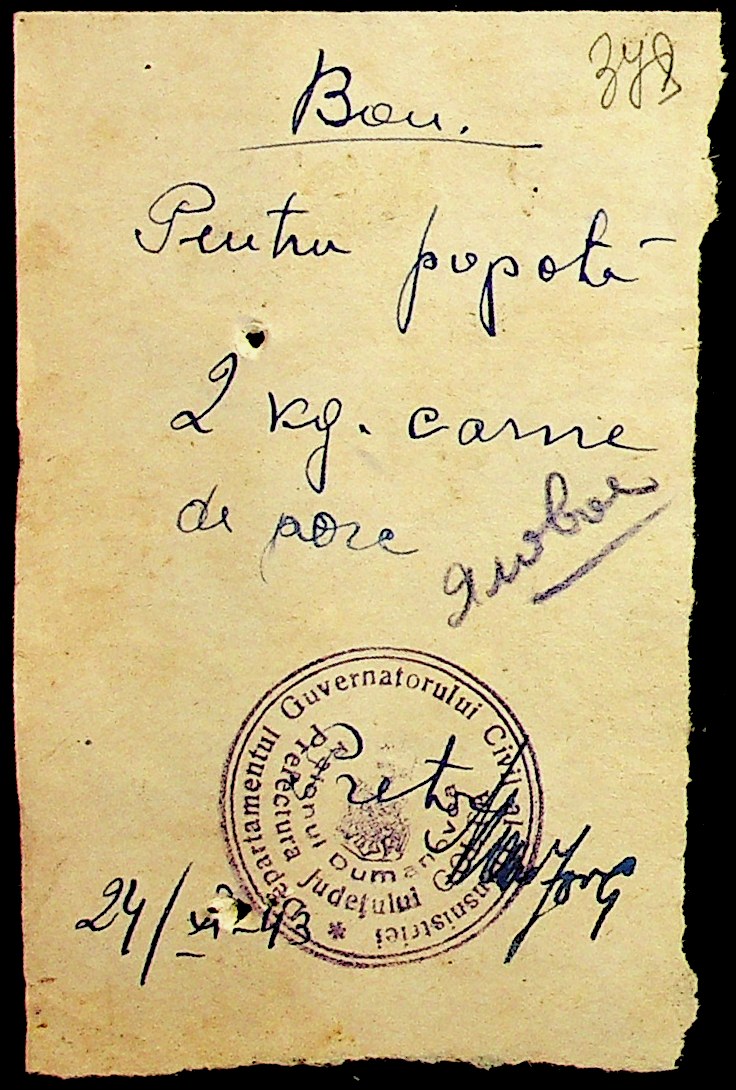 378
Bon.
Pentru popotă
2 kg. carne
de porc
Departamentul Guvernatorului Civil al Transnistriei
Prefectura Județului
Raionul
Pretor
24/XI 943